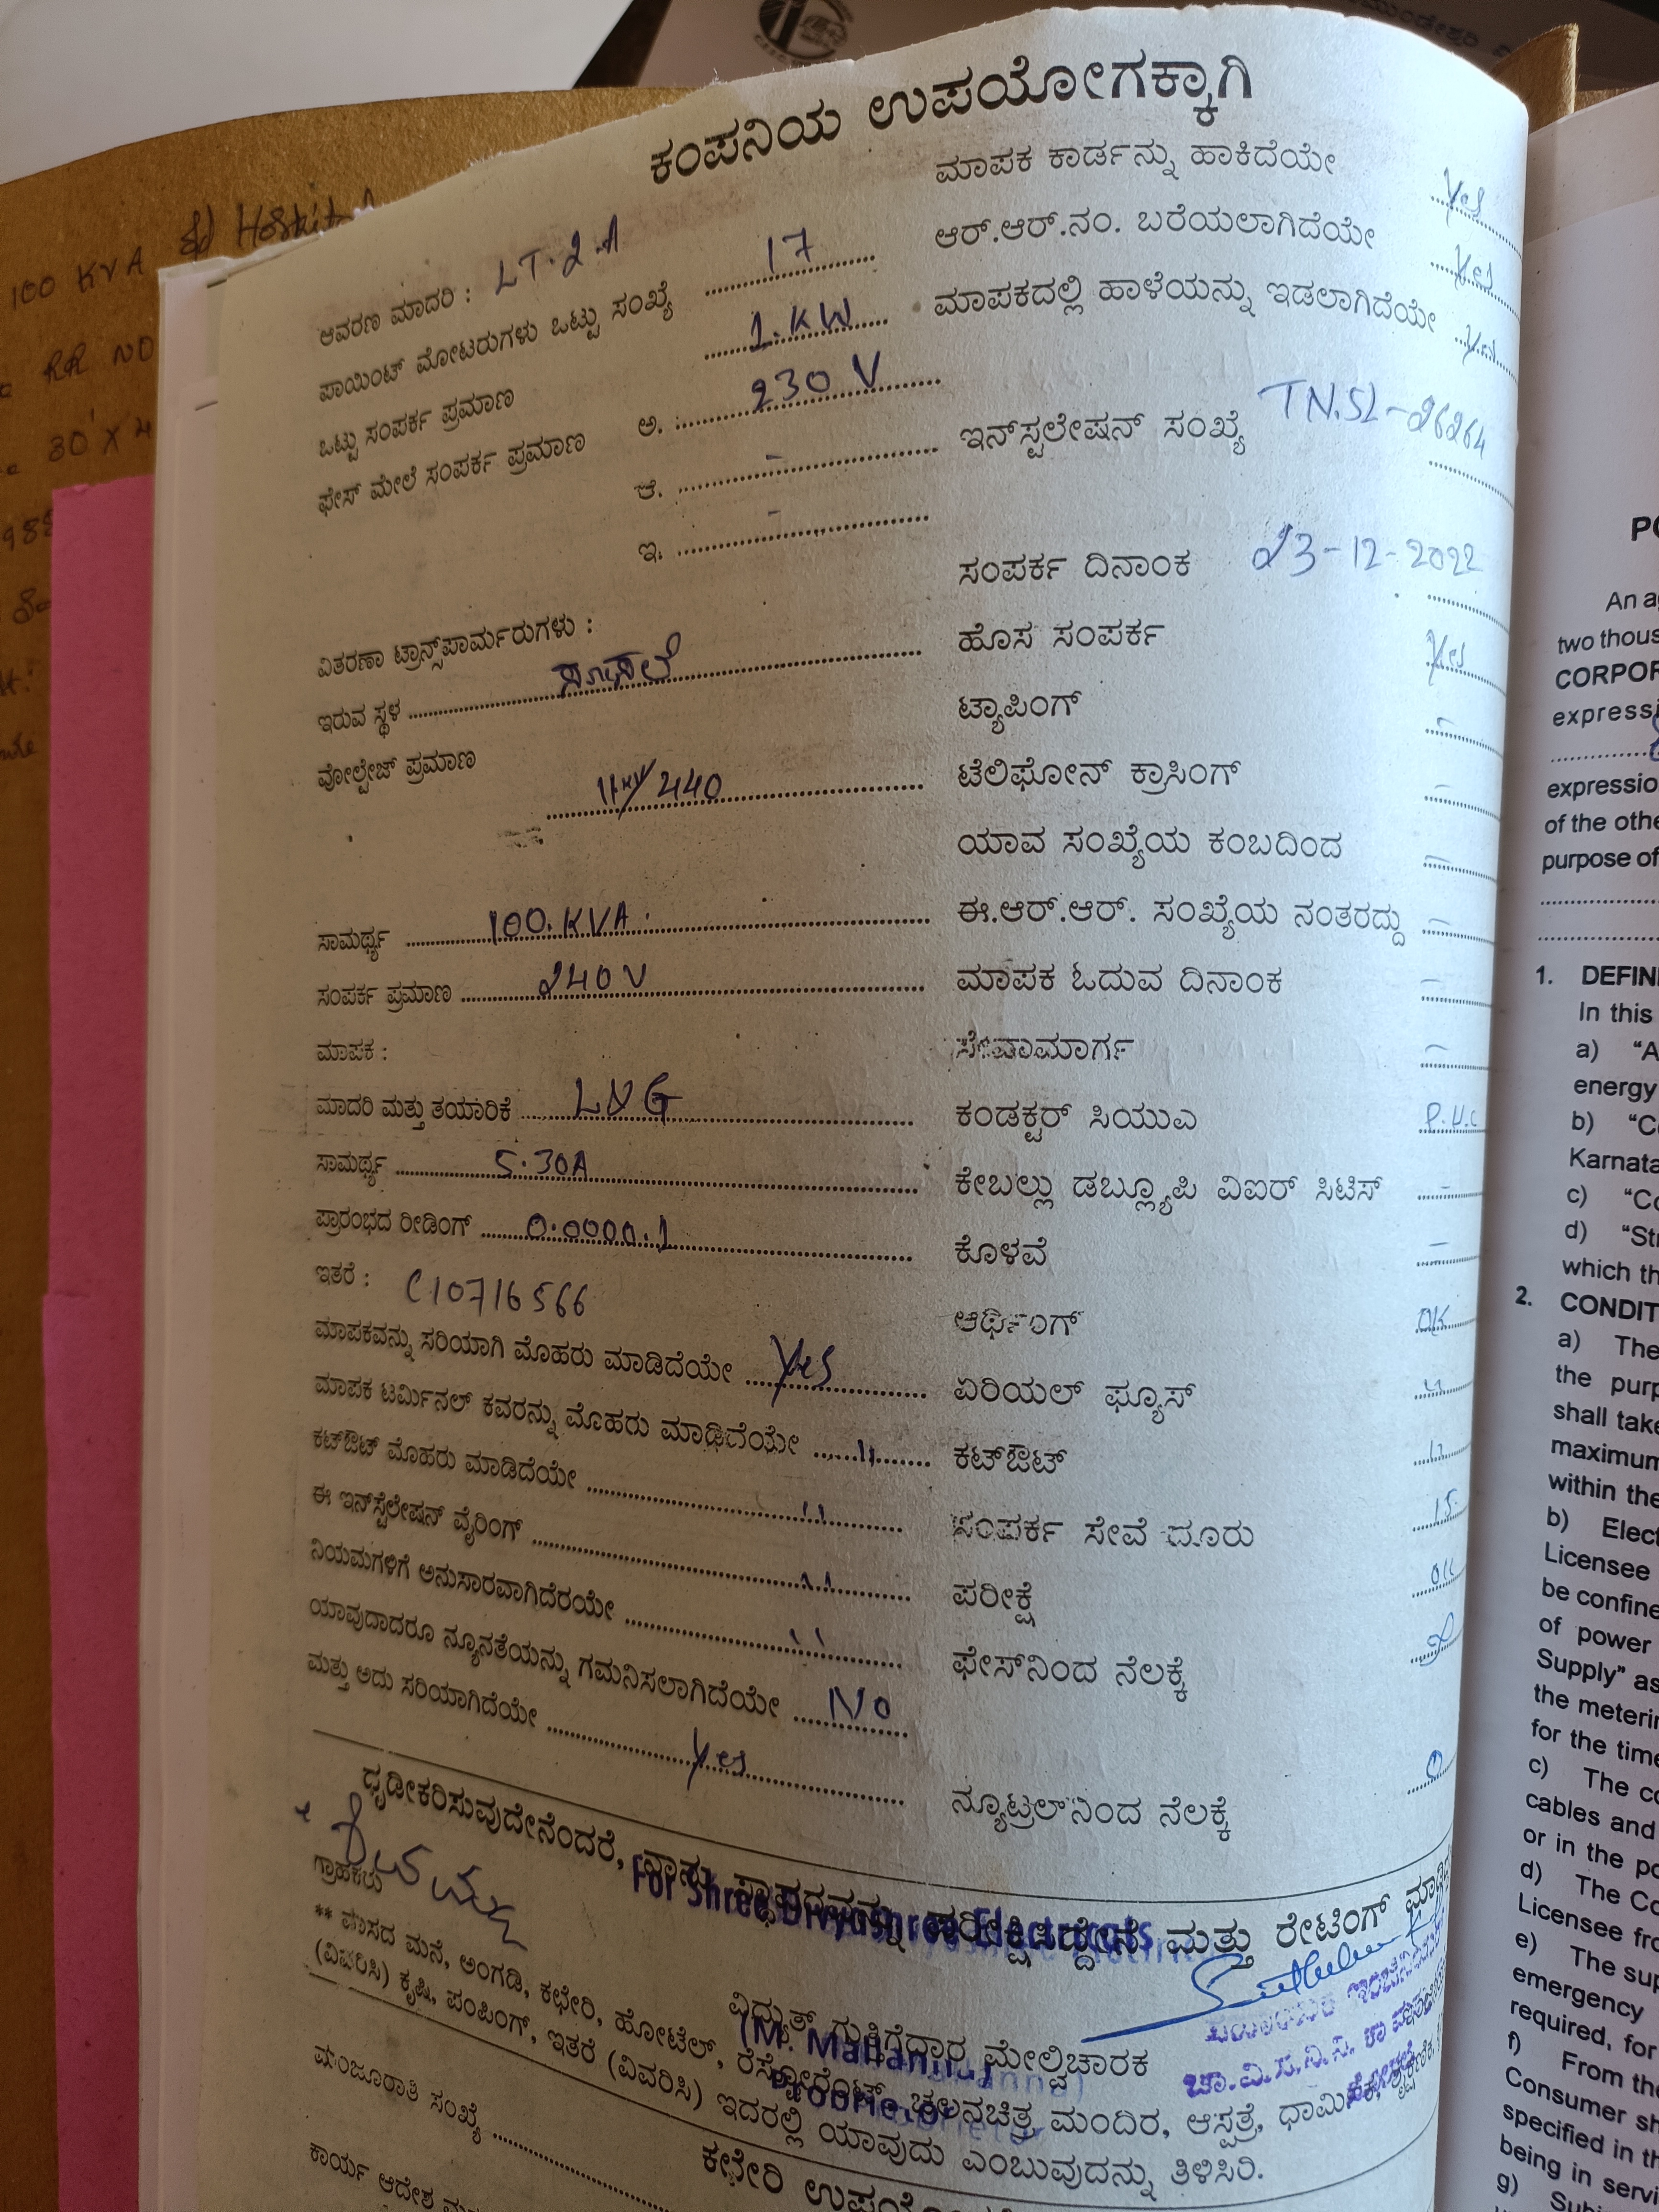 ಕಂಪನಿಯ ಉಪಯೋಗಕ್ಕಾಗಿ
100 KVA
RR NO
ಆವರಣ ಮಾದರಿ : LT.2.A
ಪಾಯಿಂಟ್ ಮೋಟರುಗಳು ಒಟ್ಟು ಸಂಖ್ಯೆ 17
ಒಟ್ಟು ಸಂಪರ್ಕ ಪ್ರಮಾಣ 1.KW
ಫೇಸ್ ಮೇಲೆ ಸಂಪರ್ಕ ಪ್ರಮಾಣ ಅ. : 230 V
ಆ. -
ಇ. -
ವಿತರಣಾ ಟ್ರಾನ್ಸ್‌ಪಾರ್ಮರುಗಳು :
ಇರುವ ಸ್ಥಳ ಸೋಸಲೆ
ವೋಲ್ಟೇಜ್ ಪ್ರಮಾಣ
11KV/440
ಸಾಮರ್ಥ್ಯ 100.KVA.
ಸಂಪರ್ಕ ಪ್ರಮಾಣ 240 V
ಮಾಪಕ :
ಮಾದರಿ ಮತ್ತು ತಯಾರಿಕೆ L&G
ಸಾಮರ್ಥ್ಯ 5.30A
ಪ್ರಾರಂಭದ ರೀಡಿಂಗ್ 0.0000.1
ಇತರೆ : C10716566
ಮಾಪಕವನ್ನು ಸರಿಯಾಗಿ ಮೊಹರು ಮಾಡಿದೆಯೇ Yes
ಮಾಪಕ ಟರ್ಮಿನಲ್ ಕವರನ್ನು ಮೊಹರು ಮಾಡಿದೆಯೇ ,,
ಕಟ್‌ಔಟ್ ಮೊಹರು ಮಾಡಿದೆಯೇ ,,
ಈ ಇನ್‌ಸ್ಟೆಲೇಷನ್ ವೈರಿಂಗ್ ,,
ನಿಯಮಗಳಿಗೆ ಅನುಸಾರವಾಗಿದೆರಯೇ ,,
ಯಾವುದಾದರೂ ನ್ಯೂನತೆಯನ್ನು ಗಮನಿಸಲಾಗಿದೆಯೇ No
ಮತ್ತು ಅದು ಸರಿಯಾಗಿದೆಯೇ Yes
ಮಾಪಕ ಕಾರ್ಡನ್ನು ಹಾಕಿದೆಯೇ Yes
ಆರ್.ಆರ್.ನಂ. ಬರೆಯಲಾಗಿದೆಯೇ Yes
ಮಾಪಕದಲ್ಲಿ ಹಾಳೆಯನ್ನು ಇಡಲಾಗಿದೆಯೇ Yes
ಇನ್‌ಸ್ಟಲೇಷನ್ ಸಂಖ್ಯೆ TN.SL-26264
ಸಂಪರ್ಕ ದಿನಾಂಕ 23-12-2022
ಹೊಸ ಸಂಪರ್ಕ Yes
ಟ್ಯಾಪಿಂಗ್ -
ಟೆಲಿಫೋನ್ ಕ್ರಾಸಿಂಗ್ -
ಯಾವ ಸಂಖ್ಯೆಯ ಕಂಬದಿಂದ -
ಈ.ಆರ್.ಆರ್. ಸಂಖ್ಯೆಯ ನಂತರದ್ದು -
ಮಾಪಕ ಓದುವ ದಿನಾಂಕ -
ಸೇವಾಮಾರ್ಗ -
ಕಂಡಕ್ಟರ್ ಸಿಯುಎ P.V.C
ಕೇಬಲ್ಲು ಡಬ್ಲ್ಯೂಪಿ ವಿಐರ್ ಸಿಟಿಸ್ -
ಕೊಳವೆ -
ಆರ್ಥಿಂಗ್ OK
ಏರಿಯಲ್ ಫ್ಯೂಸ್ ,,
ಕಟ್‌ಔಟ್ ,,
ಸಂಪರ್ಕ ಸೇವೆ ದೂರು 15
ಪರೀಕ್ಷೆ OK
ಫೇಸ್‌ನಿಂದ ನೆಲಕ್ಕೆ
ನ್ಯೂಟ್ರಲ್‌ನಿಂದ ನೆಲಕ್ಕೆ 0
ಧೃಡೀಕರಿಸುವುದೇನೆಂದರೆ, ನಾನು ಸ್ಥಾವರವನ್ನು ಪರೀಕ್ಷಿಸಿದ್ದೇನೆ ಮತ್ತು ರೇಟಿಂಗ್
For Shree Divyashree Electricals
ಗ್ರಾಹಕರು
ವಿದ್ಯುತ್ ಗುತ್ತಿಗೆದಾರ ಮೇಲ್ವಿಚಾರಕ
Proprietor
** ವಾಸದ ಮನೆ, ಅಂಗಡಿ, ಕಛೇರಿ, ಹೋಟೆಲ್, ರೆಸ್ಟೋರೆಂಟ್, ಚಲನಚಿತ್ರ ಮಂದಿರ, ಆಸ್ಪತ್ರೆ,
(ವಿವರಿಸಿ) ಕೃಷಿ, ಪಂಪಿಂಗ್, ಇತರೆ (ವಿವರಿಸಿ) ಇದರಲ್ಲಿ ಯಾವುದು ಎಂಬುವುದನ್ನು ತಿಳಿಸಿರಿ.
ಮಂಜೂರಾತಿ ಸಂಖ್ಯೆ
ಕಾರ್ಯ ಆದೇಶ
An a
two thous
CORPOR
expressi
expressio
of the othe
purpose of
1. DEFIN
In this
a) “A
energy
b) “C
Karnata
c) “Co
d) “Str
which th
2. CONDIT
a) The
the purp
shall take
maximum
within the
b) Elect
Licensee
be confine
of power
Supply” as
the meterin
for the time
c) The co
cables and
or in the po
d) The Co
Licensee fro
e) The sup
emergency
required, for
f) From the
Consumer sh
specified in th
being in servi
g) Sub